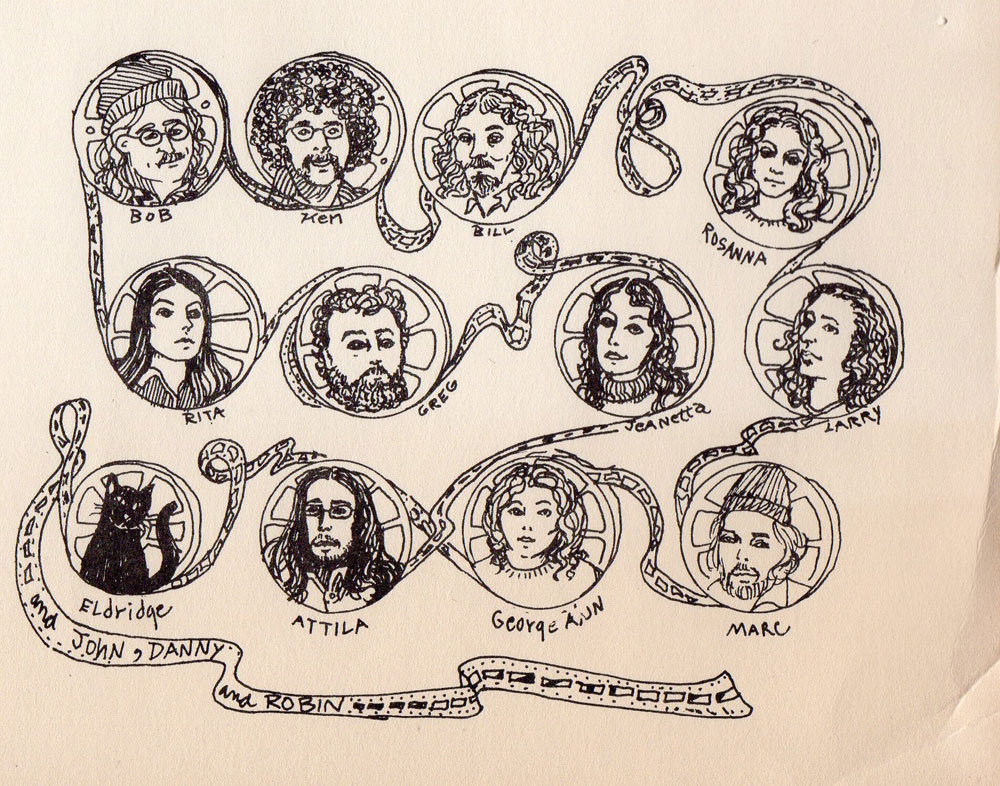 BOB
Ken
BILL
ROSANNA
RITA
GREG
JEANETTA
LARRY
ELdridge
ATTILA
MARC
and JOHN, DANNY
and ROBIN